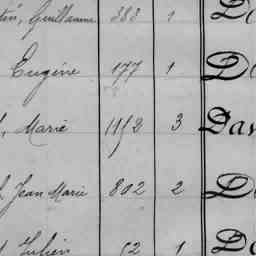 Guillaume 388 1
Eugène 177 1
Marie 1152 3 Dav
Jean Marie 802 2
Julien 52 1